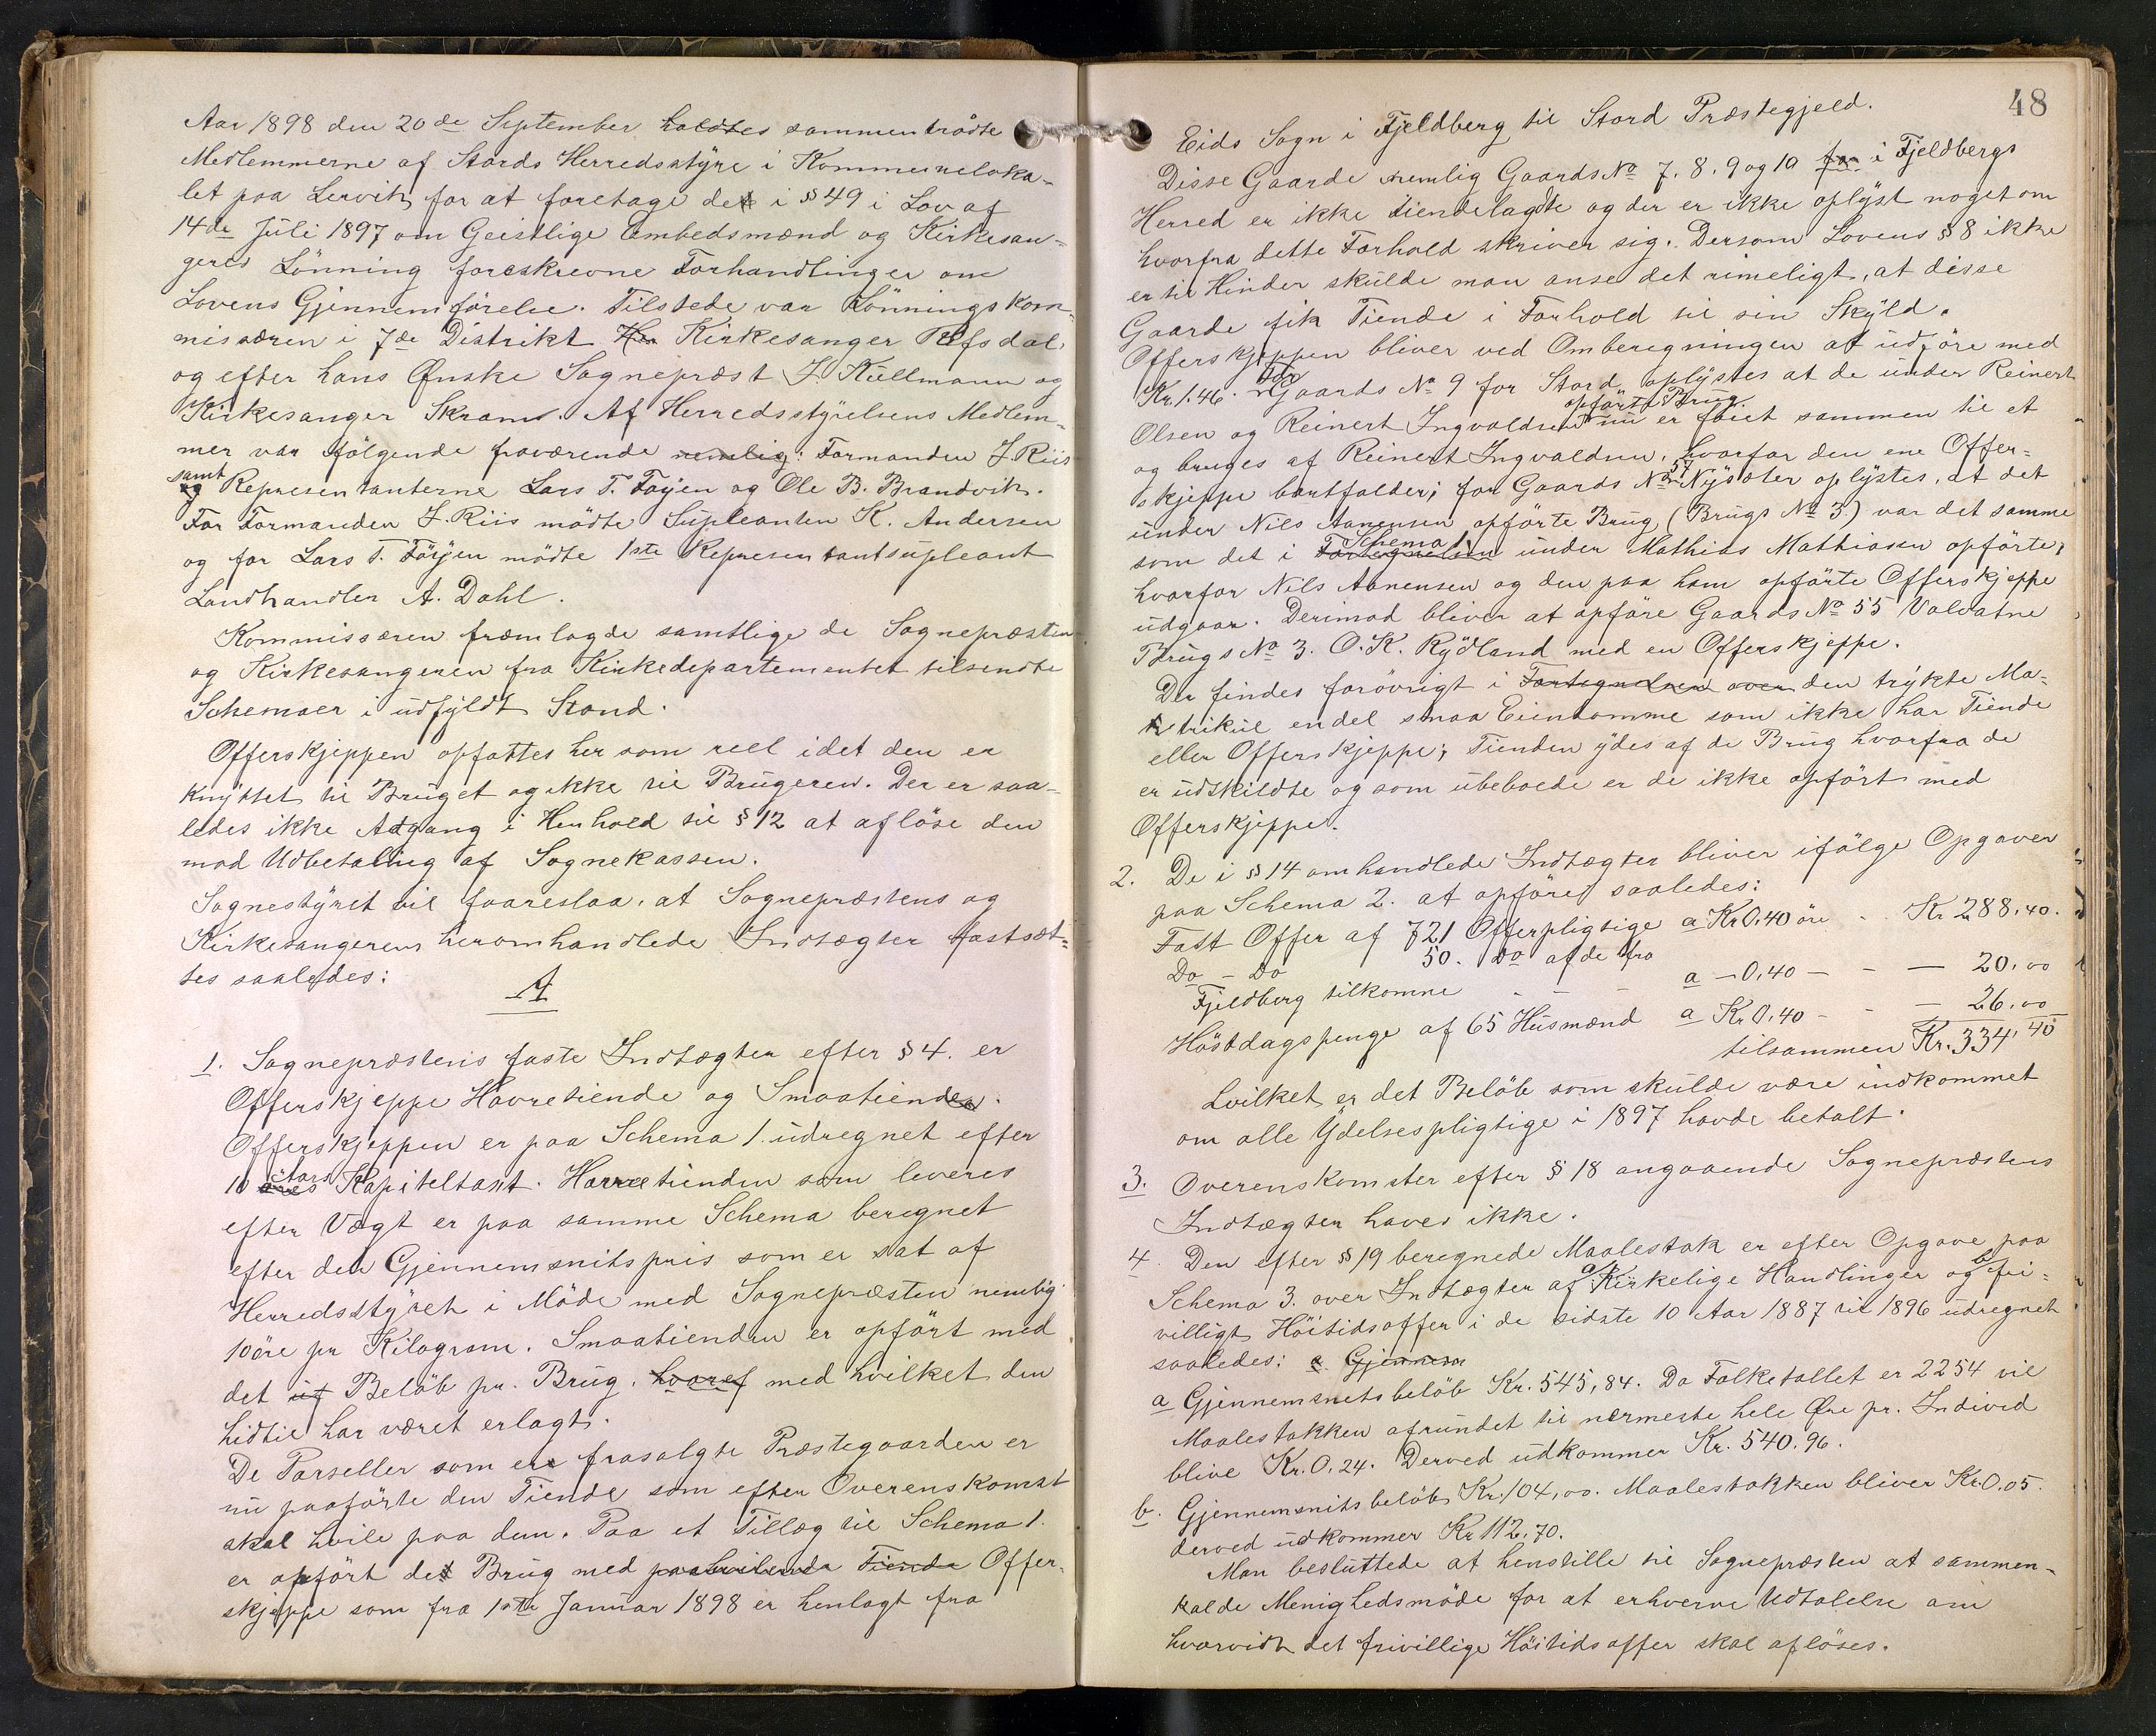 Aar 1898 den 20de September holdtes sammentrådte
Medlemmerne af Stords Herredsstÿre i Kommuneloka-
let paa Lervik for at foretage det i § 49 i Lov af
14de Juli 1897 om Geistlige Embedsmænd og Kirkesan-
geres Lönning foreskrevne Forhandlinger om
Lovens Gjennemförelse. Tilstede var Lönningskom-
missæren i 7de Distrikt Hr Kirkesanger Refsdal
og efter hans Ønske Sogneprest J. Kullmann og
Kirkesanger Skram. Af Herredsstÿrelsens Medlem-
mer var fölgende fraværende nemlig: Formanden J. Riis
samt
og Representanterne Lars T. Föÿen og Ole B. Brandvik.
For Formanden J. Riis mödte Supleanten K. Andersen
og for Lars T. Föÿen mödte 1ste Representantsupleant
Landhandler A. Dahl.
Kommissæren fremlagde samtlige de Sognepræsten
og Kirkesangeren fra Kirkedepartementet tilsendte
Schemaer i udfÿldt Stand.
Offerskjeppen opfattes her som reel idet den er
knÿttet til Bruget og ikke til Brugeren. Der er saa-
ledes ikke Adgang i Henhold til § 12 at aflöse den
mod Udbetaling af Sognekassen.
Sognestÿret vil foareslaa, at Sogneprestens og
Kirkesangerens heromhandlede Indtægter fastsæt-
tes saaledes:
A
1. Sogneprestens faste Indtægter efter § 4. er
Offerskjeppe Havretiende og Smaatienden.
Offerskjeppen er paa Schema 1. udregnet efter
10 öres Aars Kapiteltaxt. Havretienden som leveres
efter Vægt er paa samme Schema beregnet
efter den Gjennemsnitspris som er sat af
Herredsstÿret i Möde med Sognepræsten nemlig
10 öre pr Kilogram. Smaatienden er opfört med
det ut Belöb pr. Brug. hvoraf med hvilket den
hidtil har været erlagt.
De Parseller som ere frasolgte Præstegaarden er
nu paaförte den Tiende som efter Overenskomst
skal hvile paa dem. Paa et Tillæg til Schema 1.
er opfört det Brug med paahvilende Tiende Offer-
skjeppe som fra 1ste Januar 1898 er henlagt fra
48
Eids Sogn i Fjeldberg til Stord Præstegjeld.
Disse Gaarde nemlig Gaards No 7. 8. 9 og 10 fra i Fjeldbergs
Herred er ikke tiendelagte og der er ikke oplÿst noget om
hvorfra dette Forhold skriver sig. Dersom Lovens § 8 ikke
er til Hinder skulde man anse det rimeligt, at disse
Gaarde fik Tiende i Forhold til sin Skÿld.
Offerskjeppen bliver ved Omberegningen at udföre med
Kr. 1.46. Gaards No 9 for Stord oplÿstes at de under Reinert
opförte Brug
Olsen og Reinert Ingvaldsen nu er föiet sammen til et
og bruges af Reinert Ingvaldsen, hvorfor den ene Offer-
skjeppe bortfalder; for Gaards No 57 Nÿsæter oplÿstes, at det
under Nils Aanensen opförte Brug (Brugs No 3) var det samme
Schema 1
som det i Fortegnelsen under Mathias Mathiasen opförte,
hvorfor Nils Aanensen og den paa ham opförte Offerskjeppe
udgaar. Derimod bliver at opföre Gaards No 55 Valvatne
Brugs No 3. O. K. Rÿdland med en Offerskjeppe.
Der findes forövrigt i Fortegnelsen over den trÿkte Ma-
trikul endel smaa Eiendomme som ikke har Tiende
eller Offerskjeppe; Tienden ÿdes af de Brug hvorfra de
er udskildte og som ubeboede er de ikke opfört med
Offerskjeppe.
2. De i § 14 omhandlede Indtægter bliver ifölge Opgaver
paa Schema 2. at opföres saaledes:
Fast Offer af 721 Offerpligtige a Kr 0.40 öre - - Kr 288.40.
Do - Do 50. Do af de fra
Fjeldberg tilkomne - - - a - 0.40 - - - 20.00
Höstdagspenge af 65 Husmænd a Kr 0.40 - - - 26.00
tilsammen Kr. 334.40
hvilket er det Belöb som skulde være indkommet
om alle Ydelsespligtige i 1897 havde betalt.
3. Overenskomster efter § 18 angaaende Sogneprestens
Indtægter haves ikke.
4. Den efter § 19 beregnede Maalestok er efter Opgave paa
Schema 3. over Indtægter af a Kirkelige Handlinger og b fri-
villigt Höitidsoffer i de sidste 10 Aar 1887 til 1896 udregnet
saaledes: a Gjennem
a Gjennemsnetsbelöb Kr. 545,84. Da Folketallet er 2254 vil
Maalestokken afrundet til nermeste hele Øre pr. Individ
blive Kr. 0.24. Derved udkommer Kr. 540.96.
b. Gjennemsnitsbelöb Kr. 104,00. Maalestokken bliver Kr 0.05.
derved udkommer Kr 112.70.
Man besluttede at henstille til Sognepræsten at sammen-
kalde Menighedsmöde for at erhverve Udtalelse om
hvorvidt det frivillige Höitidsoffer skal aflöses.